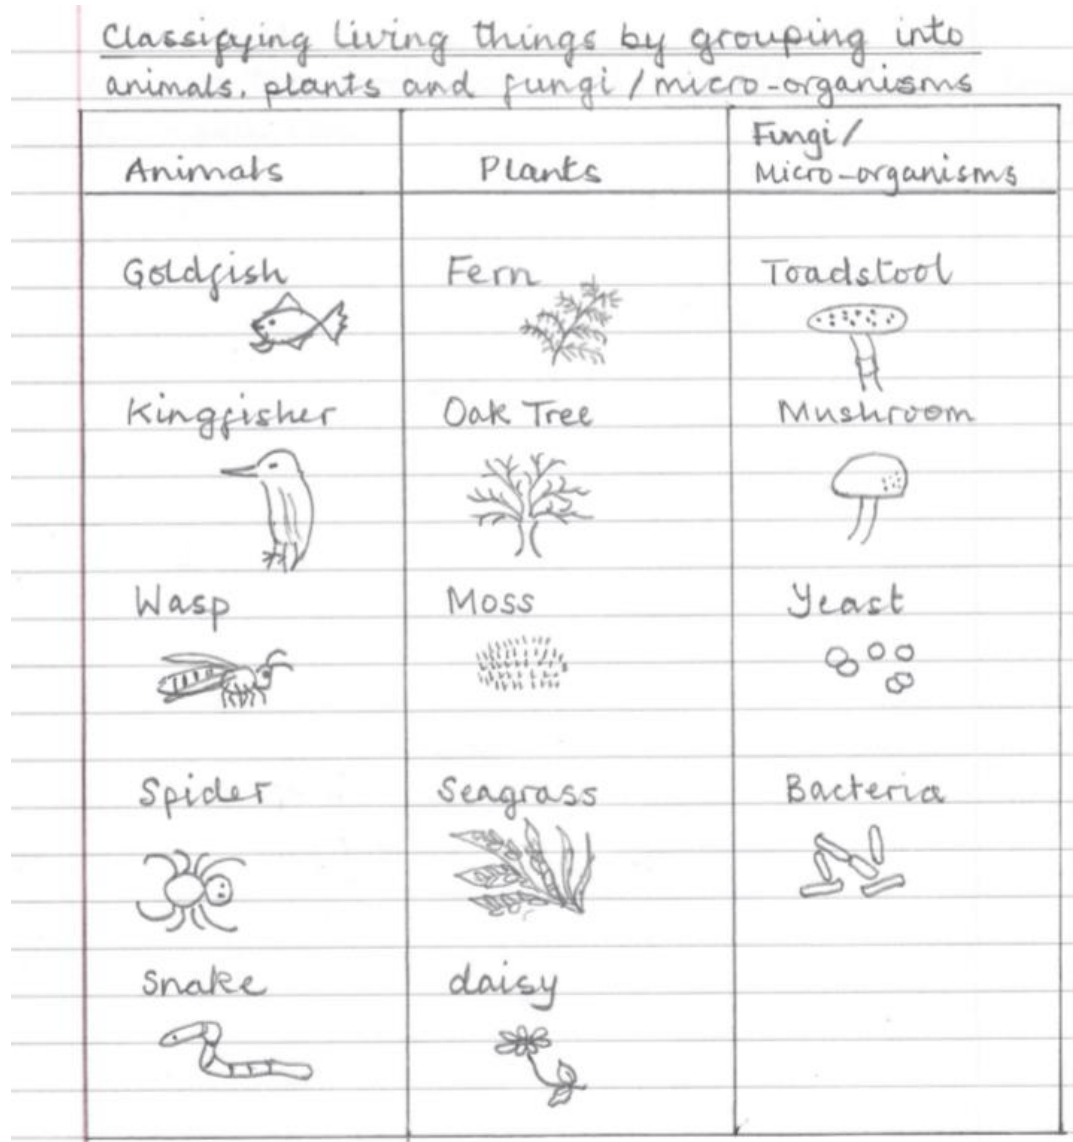 Classifying living things by grouping into
animals, plants and fungi / micro-organisms
Animals
Plants
Fungi/
Micro-organisms
Goldfish
Fern
Toadstool
Kingfisher
Oak Tree
Mushroom
Wasp
Moss
Yeast
Spider
Seagrass
Bacteria
Snake
daisy